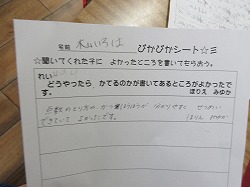 名前 木山いろは ぴかぴかシート☆彡
☆聞いてくれた子に よかったところを書いてもらおう。
れい
どうやったら かてるのかが書いてあるところがよかったで
す。 ほりえ みゆか
点数のとり方や、かつ方ほうが 分かりやすく せつめい
できていて よかったです。